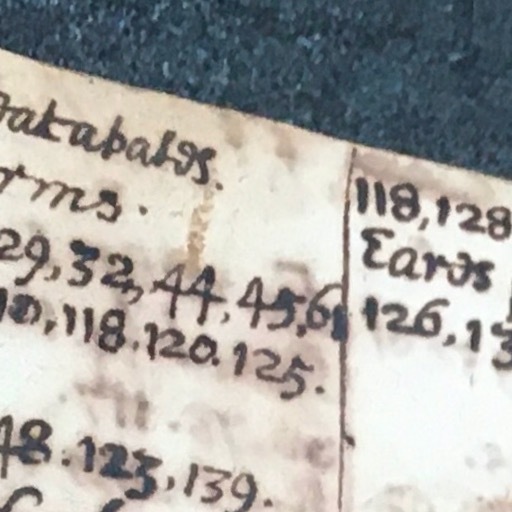 atabalos.
rms.
29, 32, 44, 45, 6
10, 118. 120. 125.
48. 123, 139.
118, 128
Earos
126, 13